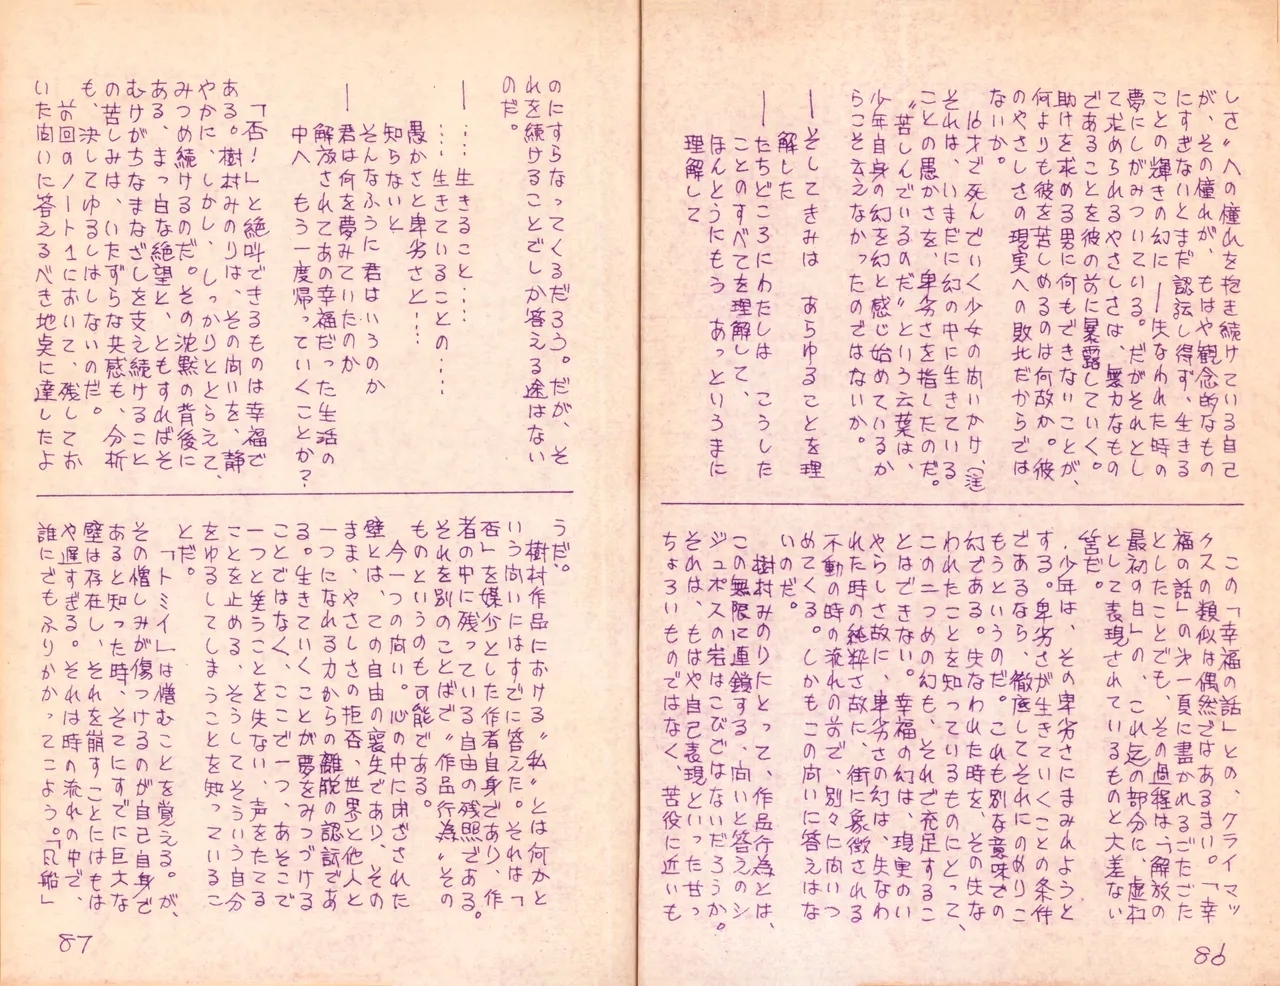 しさ〟への憧れを抱き続けている自己
が、その憧れが、もはや観念的なもの
にすぎないとまだ認云し得ず、生きる
ことの輝きの幻に――失なわれた時の
夢にしがみついている。だがそれとし
て求められるやさしさは、無力なもの
であることを彼の前に暴露していく。
助けを求める男に何もできないことが、
何よりも彼を苦しめるのは何故か。彼
のやさしさの現実への敗北だからでは
ないか。
16才で死んでいく少女の問いかけ、(注)
それは、いまだに幻の中に生きている
ことの愚かさを、卑劣さを指したのだ。
〝苦しんでいるのだ〟という云葉は、
少年自身の幻を幻と感じ始めているか
らこそ云えなかったのではないか。
――そしてきみは あらゆることを理
解した
――たちどころにわたしは こうした
ことのすべてを理解して、
ほんとうにもう あっというまに
理解して
この「幸福の話」との、クライマッ
クスの類似は偶然ではあるまい。「幸
福の話」の㐧一頁に書かれるごたごた
としたことでも、その過程は「解放の
最初の日」の、これ迄の部分に、虚ね
として表現されているものと大差ない
筈だ。
少年は、その卑劣さにまみれようと
する。卑劣さが生きていくことの条件
であるなら、徹底してそれにのめりこ
もうというのだ。これも別な意味での
幻である。失なわれた時を、その失な
われたことを知っているものにとって、
この二つめの幻も、それで充足するこ
とはできない。幸福の幻は、現実のい
やらしさ故に、卑劣さの幻は、失なわ
れた時の純粋さ故に、街に象徴される
不動の時の流れの前で、別々に向いつ
めてくる。しかもこの問いに答えはな
いのだ。
樹村みのりにとって、作品行為とは、
この無限に連鎖する、問いと答えのシ
ジュポスの岩はこびではないだろうか。
それは、もはや自己表現といった甘っ
ちょろいものではなく、苦役に近いも
86
のにすらなってくるだろう。だが、そ
れを続けることでしか答える途はない
のだ。
――……生きること……
……生きていることの……
愚かさと卑劣さと……
知らないと
そんなふうに 君はいうのか
――君は何を夢みていたのか
解放されてあの幸福だった生活の
中へ もう一度帰っていくことか?
「否!」と絶叫できるものは幸福で
ある。樹村みのりは、その問いを、静
やかに、しかし、しっかりととらえて、
みつめ続けるのだ。その沈黙の背後に
ある、まっ白な絶望と、ともすればそ
むけがちなまなざしを支え続けること
の苦しみは、いたずらな共感も、分析
も、決してゆるしはしないのだ。
前回のノート1において、残してお
いた問いに答えるべき地点に達したよ
うだ。
樹村作品における〝私〟とは何かと
いう問いにはすでに答えた。それは「
否」を媒介とした作者自身であり、作
者の中に残っている自由の残照である。
それを別のことばで〝作品行為〟その
ものというのも可能である。
今一つの問い。心の中に閉ざされた
壁とは、ての自由の裏生であり、その
まま、やさしさの拒否、世界と他人と
一つになれる力からの離脱の認試であ
る。生きていくことが夢をみつづける
ことではなく、ここで一つ、あそこで
一つと笑うことを失ない、声をたてる
ことを止める、そうしてそういう自分
をゆるしてしまうことを知っているこ
とだ。
「トミイ」は憎むことを覚える。が、
その憎しみが傷つけるのが自己自身で
あると知った時、そこにすでに巨大な
壁は存在し、それを崩すことにはもは
や遅すぎる。それは時の流れの中で、
誰にでもふりかかってこよう。「風船」
87